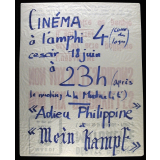 CINÉMA
à l'amphi 4
ce soir 18 juin
à 23h (après
le meeting de la Mutualité)
"Adieu Philippine"
et
"Mein Kampf"